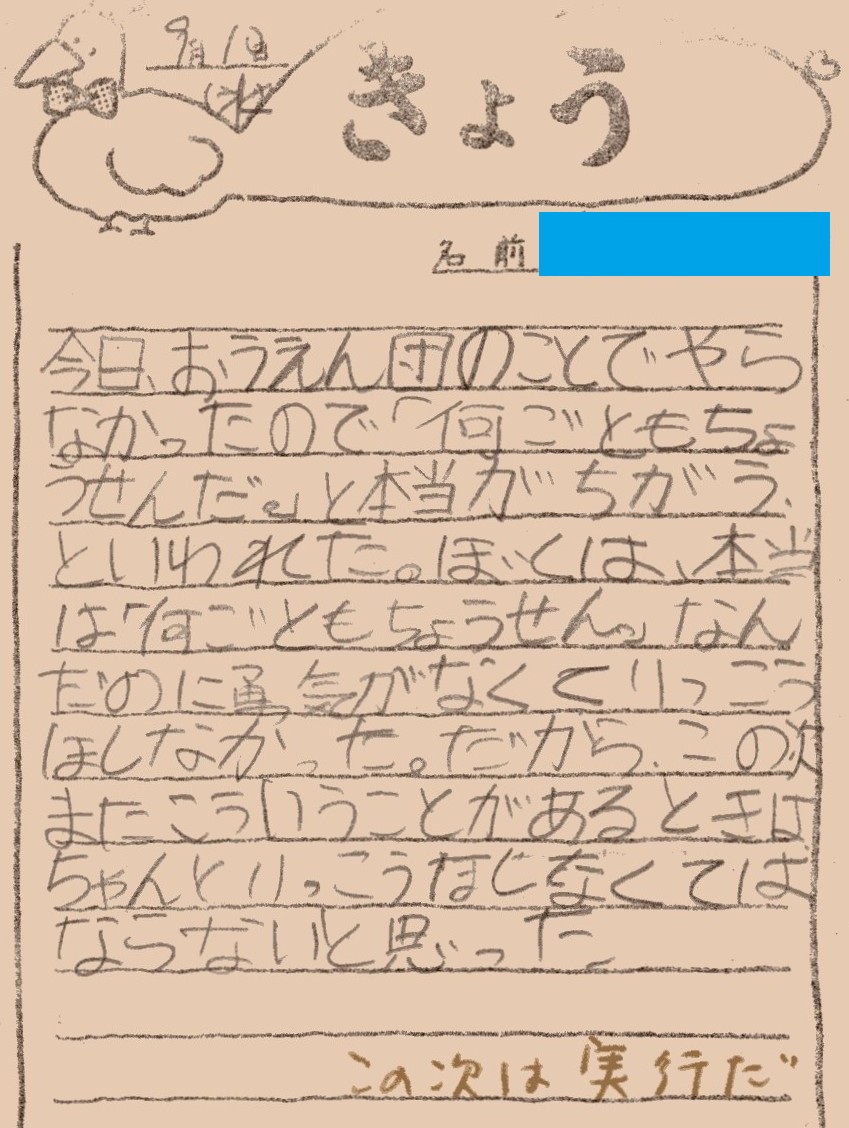 9月1日
(水)
きょう
名前
今日、おうえん団のことでやら
なかったので「何ごともちょ
うせんだ。」と本当がちがう、
といわれた。ぼくは、本当
は「何ごともちょうせん。」なん
だのに勇気がなくてりっこう
ほしなかった。だから、この次
またこういうことがあるときは
ちゃんとりっこうほしなくては
ならないと思った。
この次は実行だ